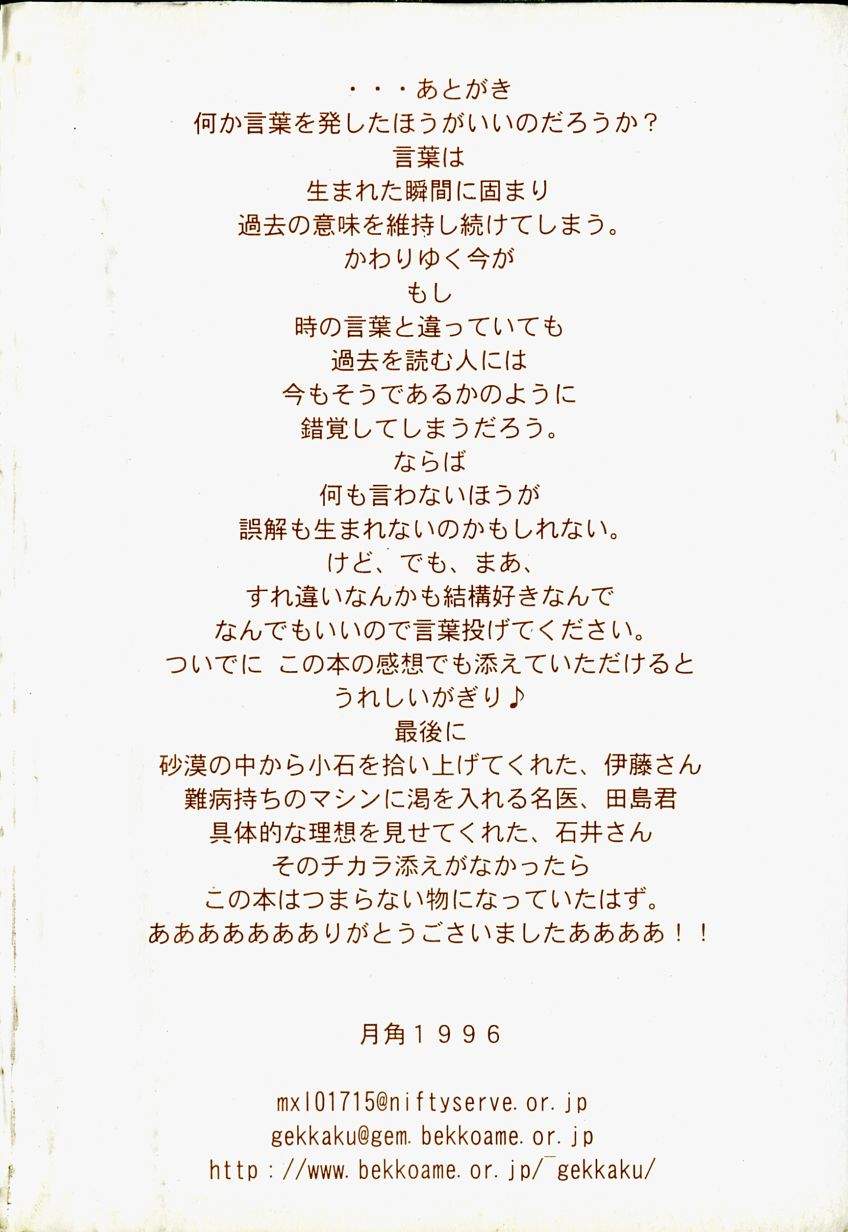 ・・・あとがき
何か言葉を発したほうがいいのだろうか？
言葉は
生まれた瞬間に固まり
過去の意味を維持し続けてしまう。
かわりゆく今が
もし
時の言葉と違っていても
過去を読む人には
今もそうであるかのように
錯覚してしまうだろう。
ならば
何も言わないほうが
誤解も生まれないのかもしれない。
けど、でも、まあ、
すれ違いなんかも結構好きなんで
なんでもいいので言葉投げてください。
ついでに この本の感想でも添えていただけると
うれしいがぎり♪
最後に
砂漠の中から小石を拾い上げてくれた、伊藤さん
難病持ちのマシンに渇を入れる名医、田島君
具体的な理想を見せてくれた、石井さん
そのチカラ添えがなかったら
この本はつまらない物になっていたはず。
あああああああありがとうごさいましたああああ！！
月角１９９６
mxl01715@niftyserve.or.jp
gekkaku@gem.bekkoame.or.jp
http：//www.bekkoame.or.jp/‾gekkaku/